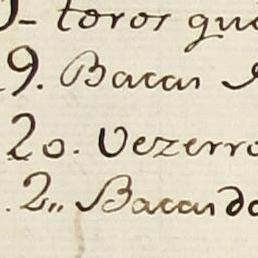 toros
9. Bacas
20. Vezerro
2,, Bacas do